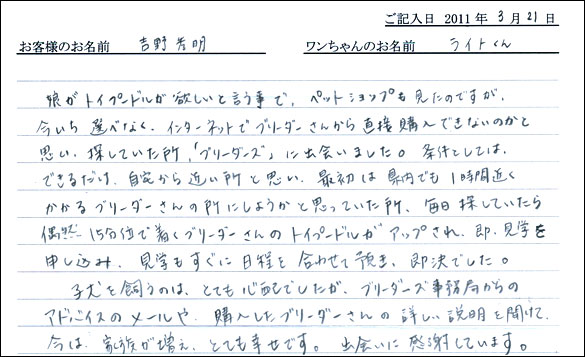 ご記入日 2011年 3月 21日
お客様のお名前 吉野秀明 ワンちゃんのお名前 ライトくん
娘がトイプードルが欲しいと言う事で、ペットショップも見たのですが、
今いち選べなく、インターネットでブリーダーさんから直接購入できないのかと
思い、探していた所、「ブリーダーズ」に出会いました。条件としては、
できるだけ、自宅から近い所と思い、最初は県内でも1時間近く
かかるブリーダーさんの所にしようかと思っていた所、毎日探していたら
偶然、15分位で着くブリーダーさんのトイプードルがアップされ、即、見学を
申し込み、見学もすぐに日程を合わせて頂き、即決でした。
子犬を飼うのは、とても心配でしたが、ブリーダーズ事務局からの
アドバイスのメールや、購入したブリーダーさんの詳しい説明を聞けて、
今は、家族が増え、とても幸せです。出会いに感謝しています。